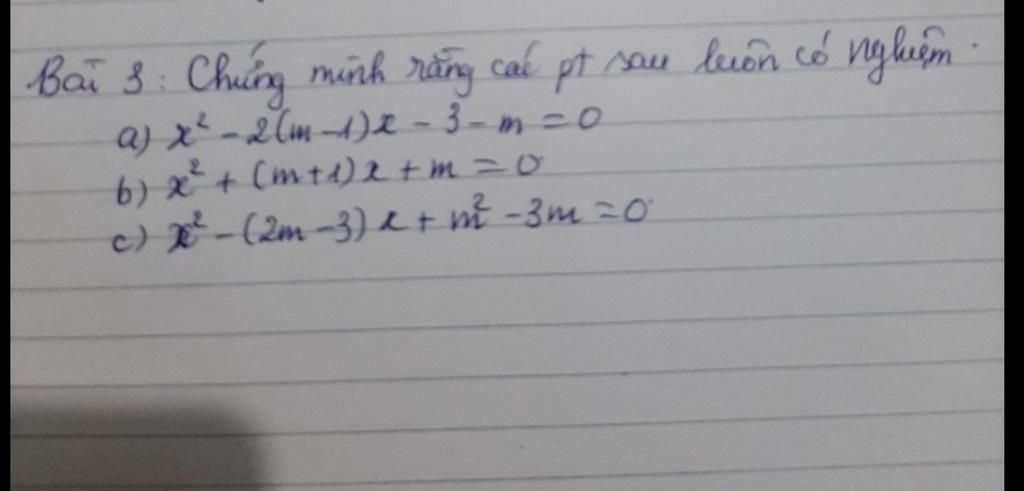 Bài 3: Chứng minh rằng các pt sau luôn có nghiệm.
a) x² - 2(m-1)x - 3 - m = 0
b) x² + (m+1)x + m = 0
c) x² - (2m-3)x + m² - 3m = 0